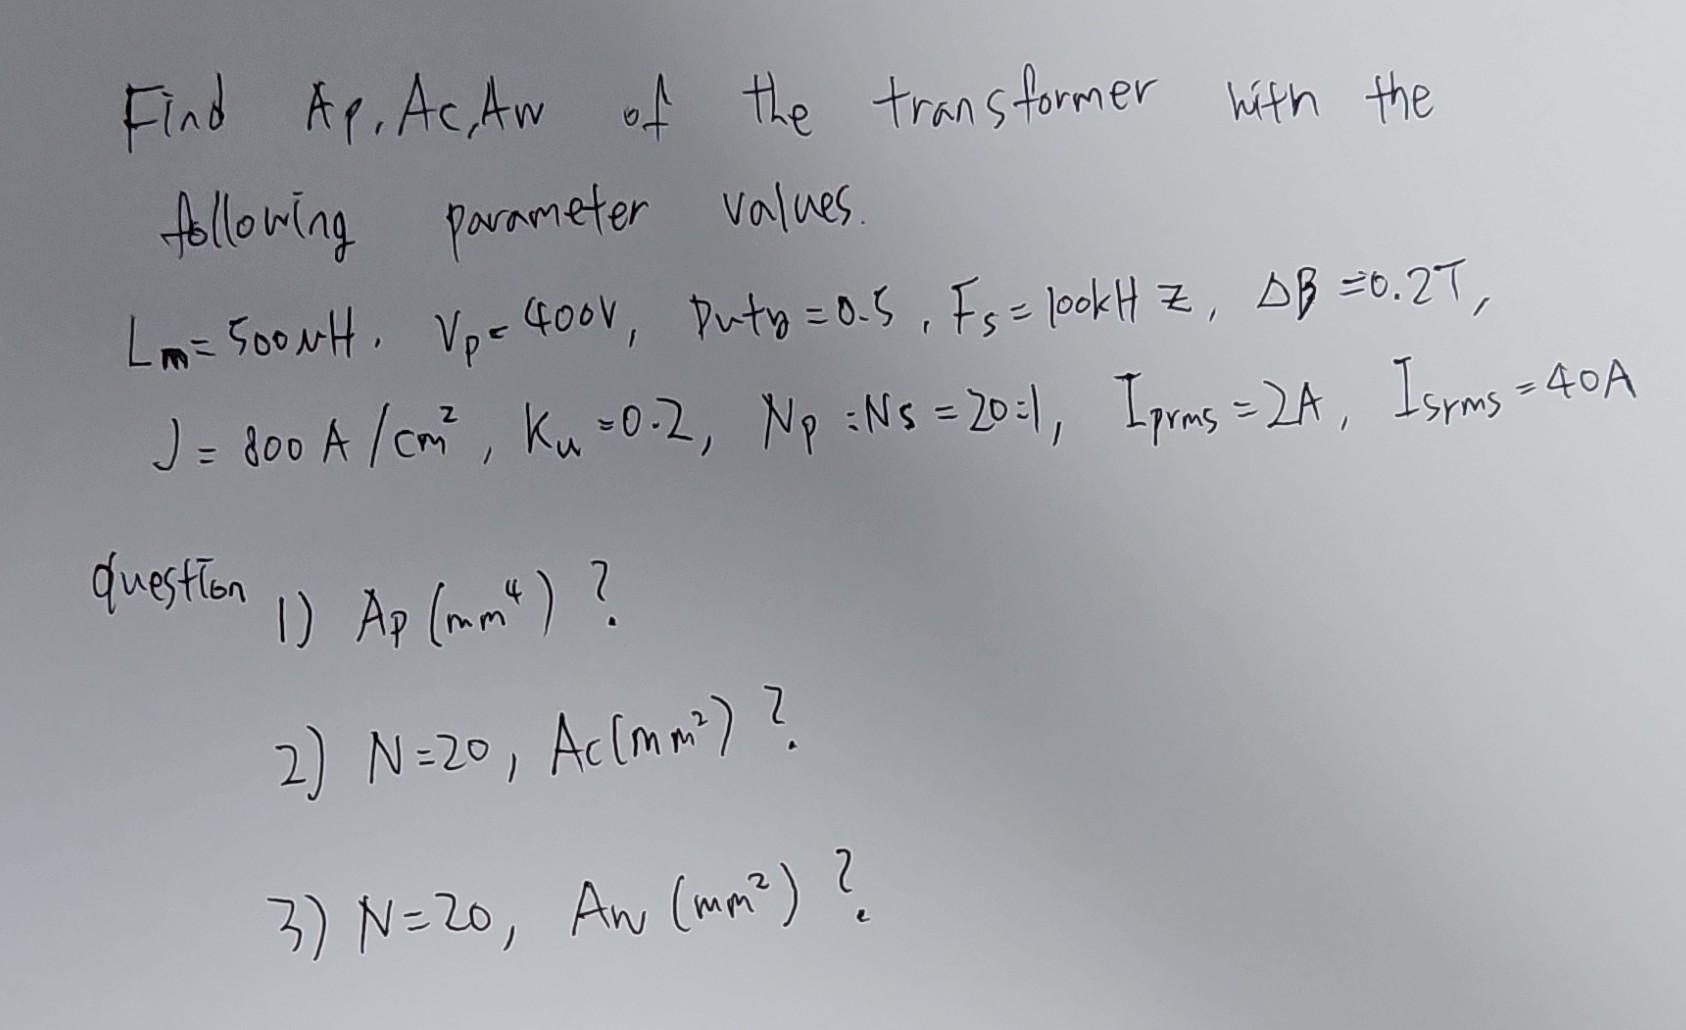 Find Ap, Ac, Aw of the transformer with the
following parameter values.
Lm = 500uH, Vp = 400V, Duty = 0.5, Fs = 100kHz, ΔB = 0.2T,
J = 800 A/cm², Ku = 0.2, Np : Ns = 20:1, Iprms = 2A, Isrms = 40A
question 1) Ap (mm⁴) ?
2) N=20, Ac(mm²) ?
3) N=20, Aw (mm²) ?